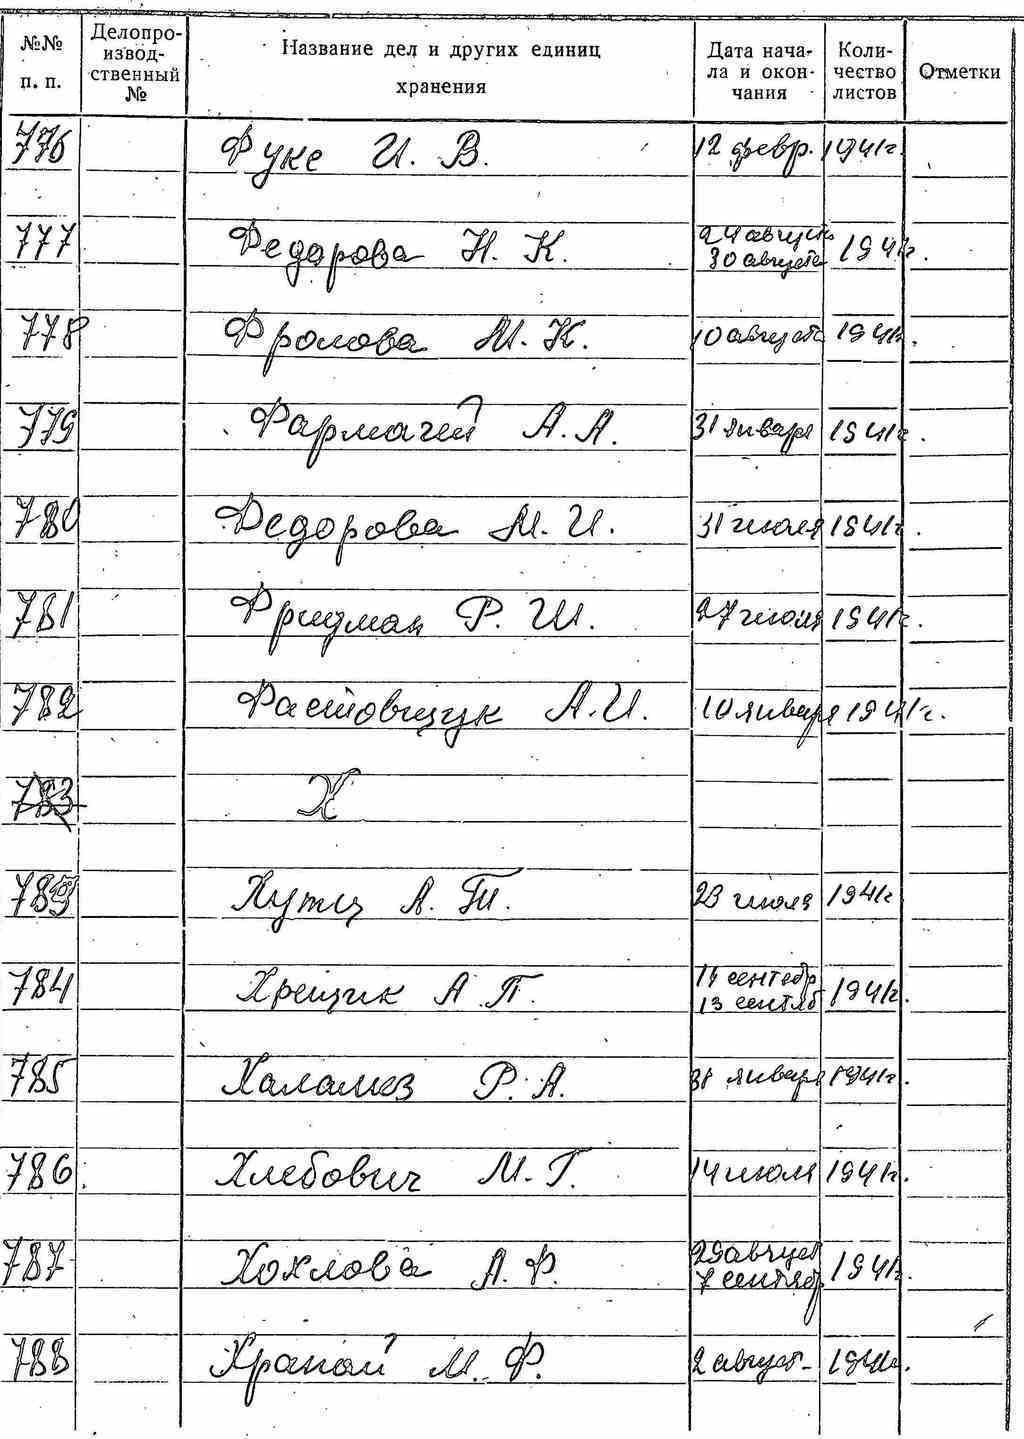 №№ п. п. Делопроизводственный № Название дел и других единиц хранения Дата начала и окончания Количество листов Отметки
776 Фукс И. В. 12 февр. 1941г.
777 Федорова Н. К. 24 август 30 августа 1941г.
778 Фролова М. К. 10 августа 1941г.
779 Фармагей А. А. 31 января 1941г.
780 Федорова М. И. 31 июля 1941г.
781 Фридман Р. Ш. 27 июля 1941г.
782 Фастовщук А. И. 10 января 1941г.
783 Х
783 А. Т. 23 июля 1941г
784 Хрещик А П. 14 сентябр 13 сентяб 1941г.
785 Р. А. 31 января 1941г.
786 Хлебович М. Г. 14 июля 1941г.
787 Хохлова А. Ф. 29 август 7 сентябр 1941г.
788 Храпай М. Ф. 2 август- 1941г.